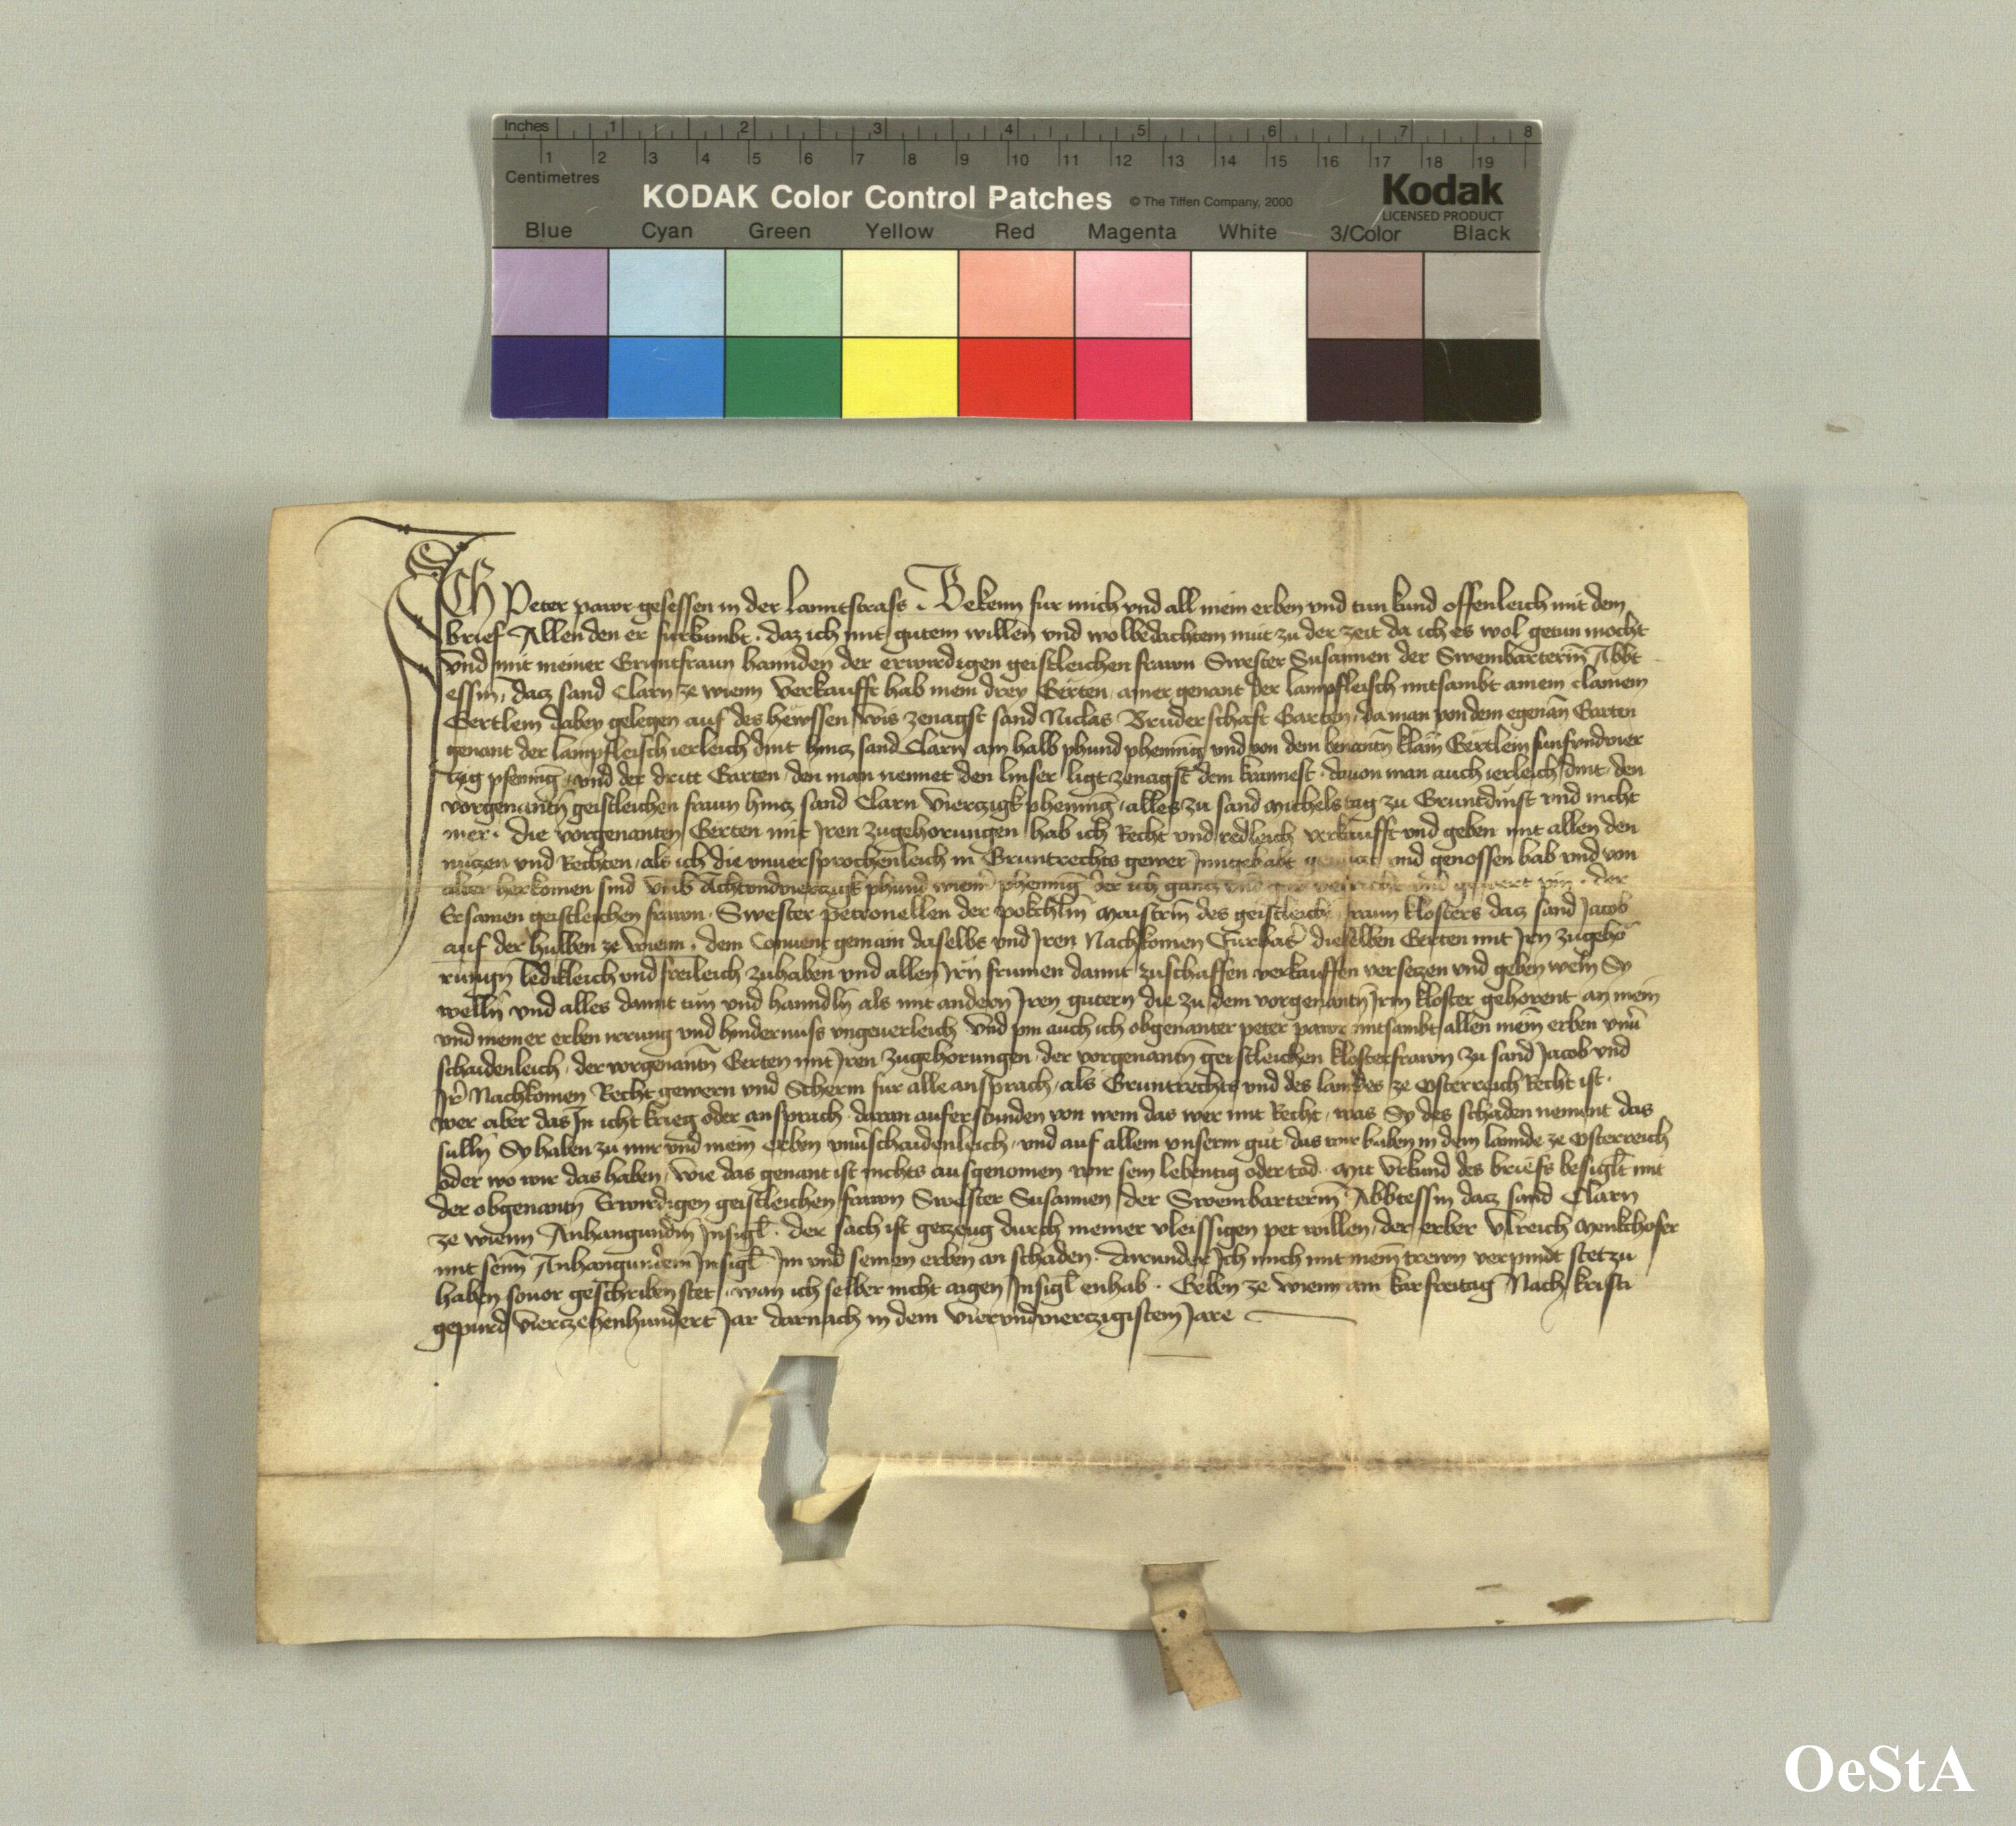 Inches 1 2 3 4 5 6 7 8
1 2 3 4 5 6 7 8 9 10 11 12 13 14 15 16 17 18 19
Centimetres
KODAK Color Control Patches © The Tiffen Company, 2000 Kodak
LICENSED PRODUCT
Blue Cyan Green Yellow Red Magenta White 3/Color Black
Ich Peter pawr gesessen in der Lanntstrass. Bekenn fur mich vnd all mein erben vnd tun kund offenleich mit dem
brief Allen den er furkumbt. daz ich mit gutem willen vnd wolbedachtem mut zu der zeit da ich es wol getun mocht
vnd mit meiner Gruntfraun hannden der erwirdigen geistleichen frawn Swester Susannen der Swembarterin̄ Abbt
essin, dacz sand Clarn ze wienn verkaufft hab mein drey Gerten, ainer genant der lampfleisch mitsambt ainem clainem
Gertlein dabey gelegen auf des hewssen wis zenagst sand Niclas Bruderschaft Garten, da man von dem egenan̄ Garten
genant der lampfleisch ierleich dint hincz sand Clarn ain halb phund phenniḡ vnd von dem benantn̄ klain̄ Gertlein funfvndvier
tzig pfenniḡ, vnd der dritt Garten, den man nennet den linser ligt zenagst dem krannest. dauon man auch ierleich dint, den
vorgenantn̄ geistleichen fraun hincz sand Clarn vierczigk phenniḡ, alles zu sand Michels tag zu Gruntdinst vnd nicht
mer. die vorgenanten Gerten mit Iren zugehorungen hab ich Recht vnd redleich verkaufft vnd geben mit allen den
nuczen vnd Rechten, als ich die vnuersprochenleich in Gruntrechts gewer Inngehabt genuczt vnd genossen hab vnd von
alter herkomen sind vmb Achtvndvierczigk phund wienn̄ phenniḡ der ich gancz vnd gar verricht vnd gewert pin. der
Ersamen geistleichen frawn. Swester petronellen der pokchlin̄ Maistrin̄ des geistleich̄ fraun klosters dacz sand Jacob
auf der hulben ze wienn. dem Conuent gemain daselbs vnd Iren Nachkomen Furbas̄ dieselben Gerten mit Irn zugeho
rungn̄ ledikleich vnd freileich zuhaben vnd allen Irn̄ frumen damit zuschaffen verkauffen verseczen vnd geben wem Sy
welln̄ vnd alles damit tun vnd hanndln̄ als mit andern Iren gutern die zu dem vorgenantn̄ Irm kloster gehorent an mein
vnd meiner erben irrung vnd hindernuss vngeuerleich vnd pin auch ich obgenanter peter pawr mitsambt allen mein̄ erben vnu̅
schaidenleich, der vorgenantn̄ Gerten mit Iren zugehorungen, der vorgenantn̄ geistleichen klosterfrawn zu sand Jacob vnd
Ir̄ Nachkomen Recht gewern vnd Scherm fur alle ansprach, als Gruntrechts vnd des landes ze Osterreich Recht ist.
wer aber das In icht krieg oder ansprach daran auferstunden von wem das wer mit Recht, was Sy des schaden nement das
sulln̄ Sy haben zu mir vnd mein̄ erben vnu̅schaidenleich, vnd auf allem vnserm gut das wir haben in dem lannde ze Osterreich
oder wo wir das haben, wie das genant ist nichts ausgenomen wir sein lebentig oder tod. mit vrkund des briefs besiglt̄ mit
der obgenantn̄ Erwirdigen geistleichen frawn Swester Susannen der Swembarterin̄ Abbtessin dacz sand Clarn
ze wienn Anhangundm̄ Insigl̄. der sach ist getzeug durch meiner vleissigen pet willen, der erber Vlreich Monkchofer
mit seim̄ Anhangundem̄ Insigl̄ Im vnd seinen erben an schaden. darunder Ich mich mit mein̄ trewn verpindt stet zu
haben souor geschriben stet, wan ich selber nicht aigen Insigl̄ enhab. Geben ze wienn am karfreitag Nach kristi
gepurd vierczehenhundert Jar darnach in dem viervndvierczigistem Jare
OeStA